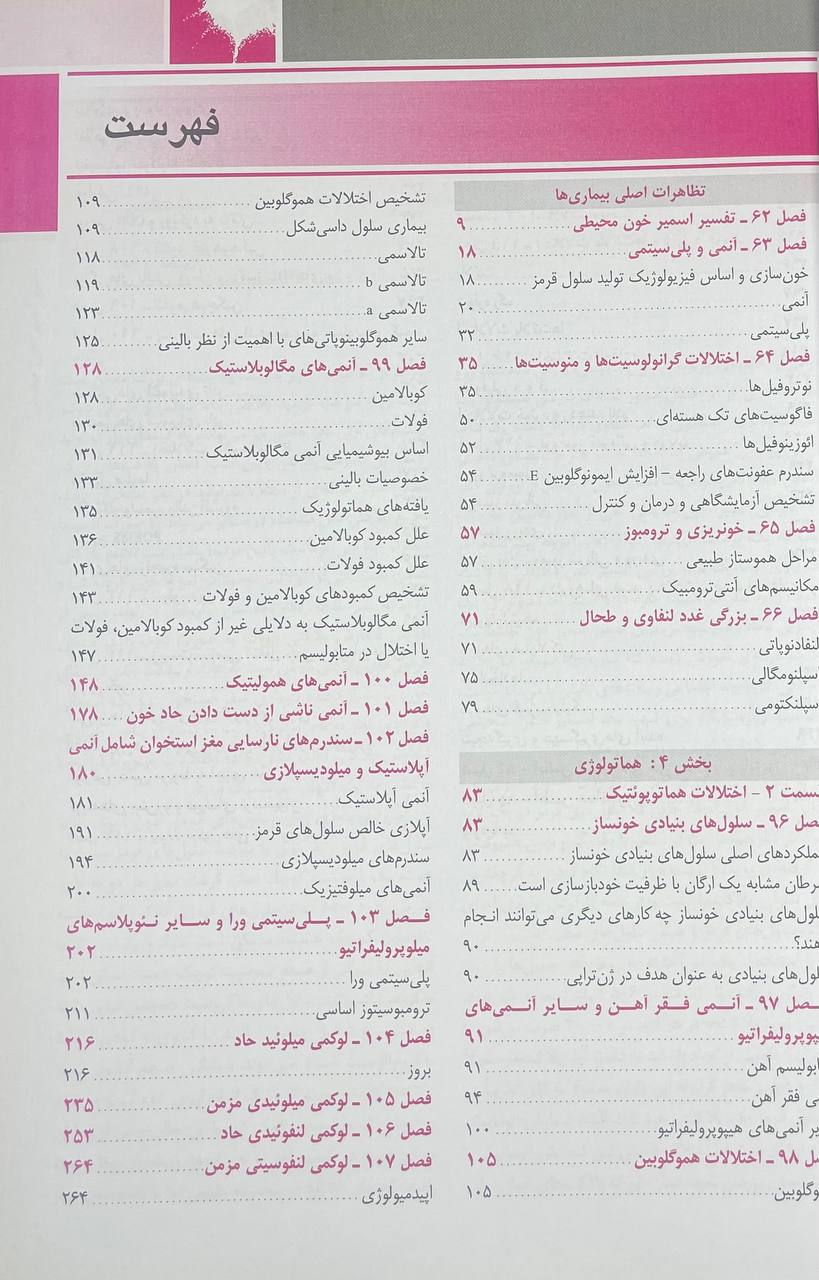 فهرست
تظاهرات اصلی بیماری‌ها
فصل ۶۲ ـ تفسیر اسمیر خون محیطی ........ ۹
فصل ۶۳ ـ آنمی و پلی‌سیتمی ........ ۱۸
خون‌سازی و اساس فیزیولوژیک تولید سلول قرمز ........ ۱۸
آنمی ........ ۲۰
پلی‌سیتمی ........ ۳۲
فصل ۶۴ ـ اختلالات گرانولوسیت‌ها و منوسیت‌ها ........ ۳۵
نوتروفیل‌ها ........ ۳۵
فاگوسیت‌های تک هسته‌ای ........ ۵۰
ائوزینوفیل‌ها ........ ۵۲
سندرم عفونت‌های راجعه – افزایش ایمونوگلوبین E ........ ۵۴
تشخیص آزمایشگاهی و درمان و کنترل ........ ۵۴
فصل ۶۵ ـ خونریزی و ترومبوز ........ ۵۷
مراحل هموستاز طبیعی ........ ۵۷
مکانیسم‌های آنتی‌ترومبیک ........ ۵۹
فصل ۶۶ ـ بزرگی غدد لنفاوی و طحال ........ ۷۱
لنفادنوپاتی ........ ۷۱
اسپلنومگالی ........ ۷۵
اسپلنکتومی ........ ۷۹
بخش ۴: هماتولوژی
سمت ۲ – اختلالات هماتوپوئتیک ........ ۸۳
صل ۹۶ ـ سلول‌های بنیادی خونساز ........ ۸۳
ملکردهای اصلی سلول‌های بنیادی خونساز ........ ۸۳
رطان مشابه یک ارگان با ظرفیت خودبازسازی است ........ ۸۹
لول‌های بنیادی خونساز چه کارهای دیگری می‌توانند انجام
هند؟ ........ ۹۰
لول‌های بنیادی به عنوان هدف در ژن‌تراپی ........ ۹۰
صل ۹۷ ـ آنمی فقر آهن و سایر آنمی‌های
یپوپرولیفراتیو ........ ۹۱
ابولیسم آهن ........ ۹۱
ی فقر آهن ........ ۹۴
یر آنمی‌های هیپوپرولیفراتیو ........ ۱۰۰
صل ۹۸ ـ اختلالات هموگلوبین ........ ۱۰۵
وگلوبین ........ ۱۰۵
تشخیص اختلالات هموگلوبین ........ ۱۰۹
بیماری سلول داسی‌شکل ........ ۱۰۹
تالاسمی ........ ۱۱۸
تالاسمی b ........ ۱۱۹
تالاسمی a ........ ۱۲۳
سایر هموگلوبینوپاتی‌های با اهمیت از نظر بالینی ........ ۱۲۵
فصل ۹۹ ـ آنمی‌های مگالوبلاستیک ........ ۱۲۸
کوبالامین ........ ۱۲۸
فولات ........ ۱۳۰
اساس بیوشیمیایی آنمی مگالوبلاستیک ........ ۱۳۱
خصوصیات بالینی ........ ۱۳۳
یافته‌های هماتولوژیک ........ ۱۳۵
علل کمبود کوبالامین ........ ۱۳۶
علل کمبود فولات ........ ۱۴۱
تشخیص کمبودهای کوبالامین و فولات ........ ۱۴۳
آنمی مگالوبلاستیک به دلایلی غیر از کمبود کوبالامین، فولات
یا اختلال در متابولیسم ........ ۱۴۷
فصل ۱۰۰ ـ آنمی‌های همولیتیک ........ ۱۴۸
فصل ۱۰۱ ـ آنمی ناشی از دست دادن حاد خون ........ ۱۷۸
فصل ۱۰۲ ـ سندرم‌های نارسایی مغز استخوان شامل آنمی
آپلاستیک و میلودیسپلازی ........ ۱۸۰
آنمی آپلاستیک ........ ۱۸۱
آپلازی خالص سلول‌های قرمز ........ ۱۹۱
سندرم‌های میلودیسپلازی ........ ۱۹۴
آنمی‌های میلوفتیزیک ........ ۲۰۰
فصل ۱۰۳ ـ پلی‌سیتمی ورا و سایر نئوپلاسم‌های
میلوپرولیفراتیو ........ ۲۰۲
پلی‌سیتمی ورا ........ ۲۰۲
ترومبوسیتوز اساسی ........ ۲۱۱
فصل ۱۰۴ ـ لوکمی میلوئید حاد ........ ۲۱۶
بروز ........ ۲۱۶
فصل ۱۰۵ ـ لوکمی میلوئیدی مزمن ........ ۲۳۵
فصل ۱۰۶ ـ لوکمی لنفوئیدی حاد ........ ۲۵۳
فصل ۱۰۷ ـ لوکمی لنفوسیتی مزمن ........ ۲۶۴
اپیدمیولوژی ........ ۲۶۴